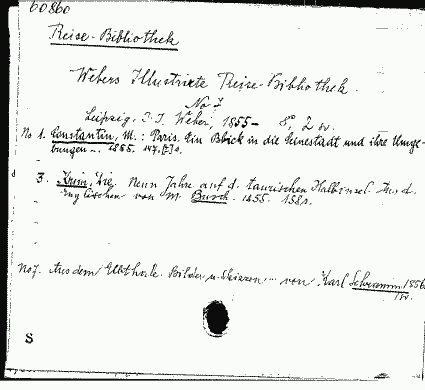 60860
Reise-Bibliothek
Webers Illustrirte Reise-Bibliothek.
No 7
Leipzig, J. J. Weber, 1855- 8°, 2 w.
No 1. Constantin, M.: Paris. Ein Blick in die Seinestadt und ihre Umge-
bungen... 1855. 147,
3. Krim, Die. Neun Jahre auf d. taurischen Halbinsel. Aus d.
Englischen von M. Busch. 1855. 158 s.
No 7. Aus dem Elbthale. Bilder u. Skizzen... von Karl Schramm 1856
1 w.
S